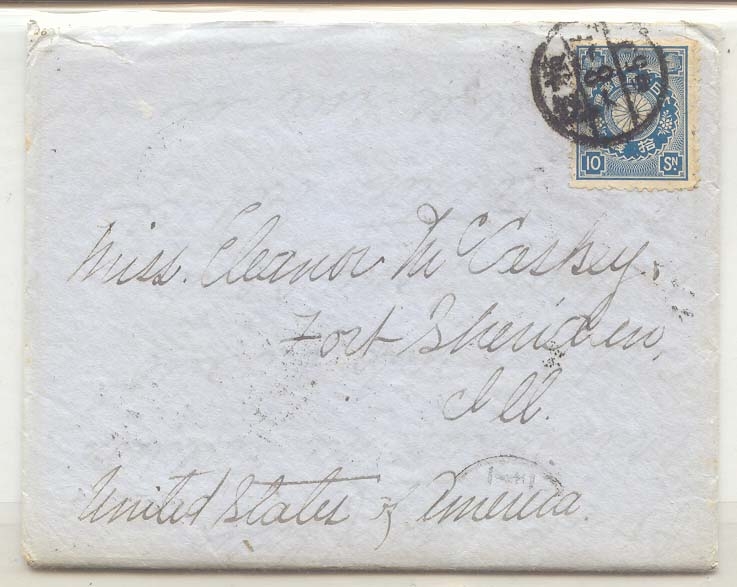 10 SN
拾
Miss. Eleanor McCaskey.
Fort Sheriden,
Ill.
United States of America.